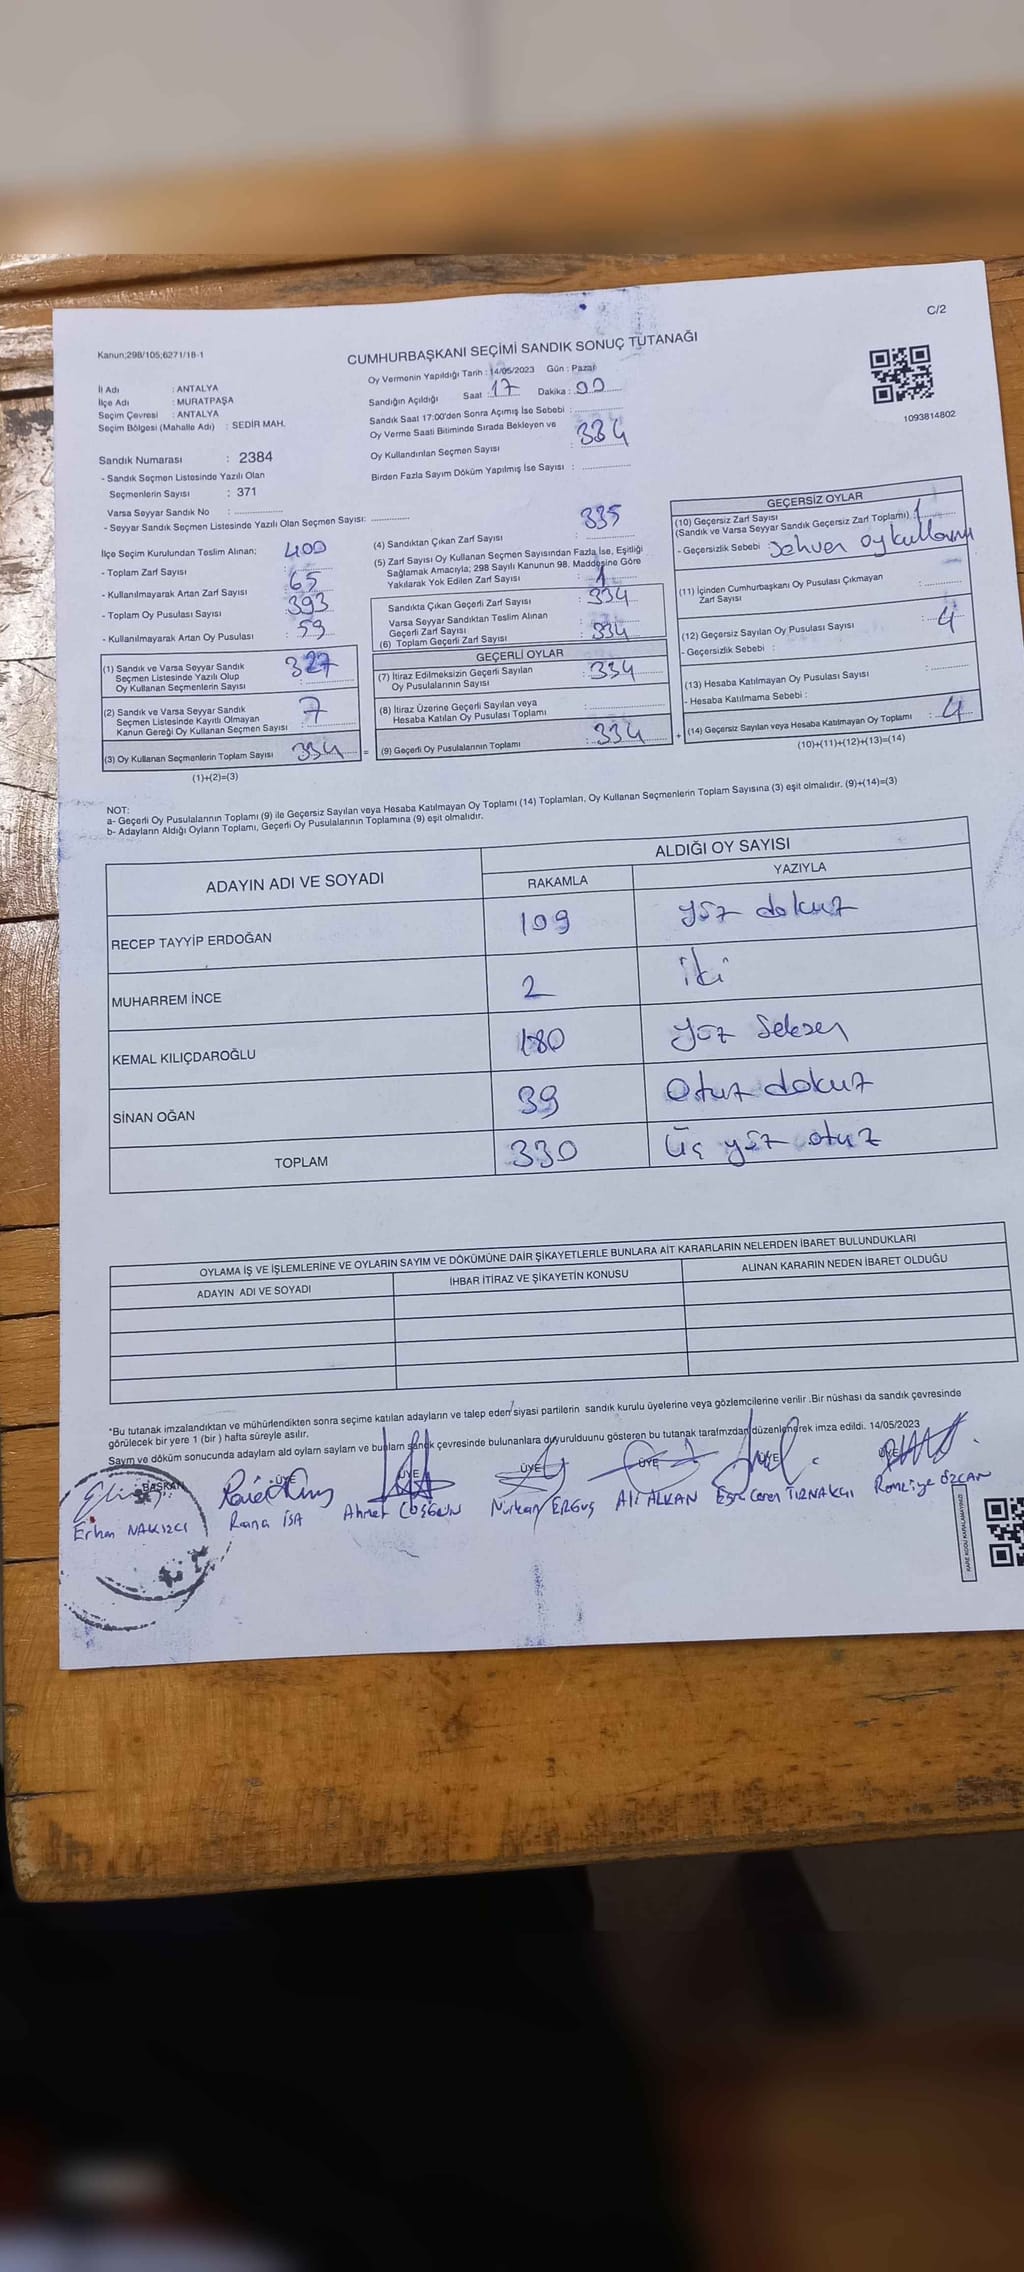 C/2
Kanun;298/105;6271/18-1
CUMHURBAŞKANI SEÇİMİ SANDIK SONUÇ TUTANAĞI
1093814802
İl Adı : ANTALYA
İlçe Adı : MURATPAŞA
Seçim Çevresi : ANTALYA
Seçim Bölgesi (Mahalle Adı) : SEDİR MAH.
Oy Vermenin Yapıldığı Tarih : 14/05/2023 Gün : Pazar
Sandığın Açıldığı Saat 17 Dakika : 00
Sandık Saat 17:00'den Sonra Açımış İse Sebebi :
Oy Verme Saati Bitiminde Sırada Bekleyen ve
Oy Kullandırılan Seçmen Sayısı : 334
Birden Fazla Sayım Döküm Yapılmış İse Sayısı :
Sandık Numarası : 2384
- Sandık Seçmen Listesinde Yazılı Olan
Seçmenlerin Sayısı : 371
Varsa Seyyar Sandık No :
- Seyyar Sandık Seçmen Listesinde Yazılı Olan Seçmen Sayısı:
İlçe Seçim Kurulundan Teslim Alınan;
- Toplam Zarf Sayısı : 400
- Kullanılmayarak Artan Zarf Sayısı : 65
- Toplam Oy Pusulası Sayısı : 393
- Kullanılmayarak Artan Oy Pusulası : 59
(1) Sandık ve Varsa Seyyar Sandık
Seçmen Listesinde Yazılı Olup
Oy Kullanan Seçmenlerin Sayısı : 327
(2) Sandık ve Varsa Seyyar Sandık
Seçmen Listesinde Kayıtlı Olmayan
Kanun Gereği Oy Kullanan Seçmen Sayısı : 7
(3) Oy Kullanan Seçmenlerin Toplam Sayısı : 334 =
(1)+(2)=(3)
(4) Sandıktan Çıkan Zarf Sayısı : 335
(5) Zarf Sayısı Oy Kullanan Seçmen Sayısından Fazla İse, Eşitliği
Sağlamak Amacıyla; 298 Sayılı Kanunun 98. Maddesine Göre
Yakılarak Yok Edilen Zarf Sayısı : 1
Sandıkta Çıkan Geçerli Zarf Sayısı : 334
Varsa Seyyar Sandıktan Teslim Alınan
Geçerli Zarf Sayısı :
(6) Toplam Geçerli Zarf Sayısı : 334
GEÇERLİ OYLAR
(7) İtiraz Edilmeksizin Geçerli Sayılan
Oy Pusulalarının Sayısı : 334
(8) İtiraz Üzerine Geçerli Sayılan veya
Hesaba Katılan Oy Pusulası Toplamı :
(9) Geçerli Oy Pusulalarının Toplamı : 334 +
GEÇERSİZ OYLAR
(10) Geçersiz Zarf Sayısı
(Sandık ve Varsa Seyyar Sandık Geçersiz Zarf Toplamı) : 1
- Geçersizlik Sebebi : Sehven oy kullanma
(11) İçinden Cumhurbaşkanı Oy Pusulası Çıkmayan
Zarf Sayısı :
(12) Geçersiz Sayılan Oy Pusulası Sayısı : 4
- Geçersizlik Sebebi :
(13) Hesaba Katılmayan Oy Pusulası Sayısı :
- Hesaba Katılmama Sebebi :
(14) Geçersiz Sayılan veya Hesaba Katılmayan Oy Toplamı : 4
(10)+(11)+(12)+(13)=(14)
NOT:
a- Geçerli Oy Pusulalarının Toplamı (9) ile Geçersiz Sayılan veya Hesaba Katılmayan Oy Toplamı (14) Toplamları, Oy Kullanan Seçmenlerin Toplam Sayısına (3) eşit olmalıdır. (9)+(14)=(3)
b- Adayların Aldığı Oyların Toplamı, Geçerli Oy Pusulalarının Toplamına (9) eşit olmalıdır.
ADAYIN ADI VE SOYADI
ALDIĞI OY SAYISI
RAKAMLA YAZIYLA
RECEP TAYYİP ERDOĞAN 109 yüz dokuz
MUHARREM İNCE 2 iki
KEMAL KILIÇDAROĞLU 180 yüz seksen
SİNAN OĞAN 39 otuz dokuz
TOPLAM 330 Üç yüz otuz
OYLAMA İŞ VE İŞLEMLERİNE VE OYLARIN SAYIM VE DÖKÜMÜNE DAİR ŞİKAYETLERLE BUNLARA AİT KARARLARIN NELERDEN İBARET BULUNDUKLARI
ADAYIN ADI VE SOYADI İHBAR İTİRAZ VE ŞİKAYETİN KONUSU ALINAN KARARIN NEDEN İBARET OLDUĞU
*Bu tutanak imzalandıktan ve mühürlendikten sonra seçime katılan adayların ve talep eden siyasi partilerin sandık kurulu üyelerine veya gözlemcilerine verilir .Bir nüshası da sandık çevresinde
görülecek bir yere 1 (bir ) hafta süreyle asılır.
Sayım ve döküm sonucunda adayların ald oyların sayları ve bunların sandık çevresinde bulunanlara duyurulduunu gösteren bu tutanak tarafmzdan düzenlenerek imza edildi. 14/05/2023
BAŞKAN ÜYE ÜYE ÜYE ÜYE ÜYE ÜYE
Erhan NAKIŞCI Rana İSA Ahmet COŞGUN Nurkan ERGUŞ Ali ALKAN Esra Ceren TIRNAKCI Remziye ÖZCAN
KARE KODU KARALAMAYINIZ!